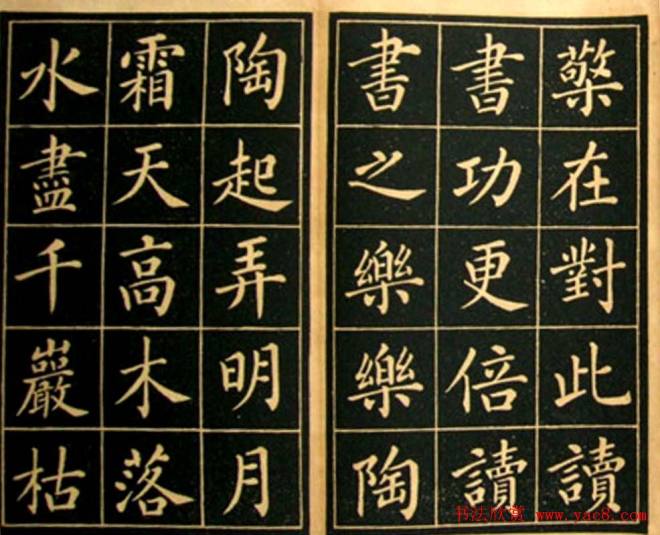 檠在對此讀
書功更倍讀
書之樂樂陶
陶起弄明月
霜天高木落
水盡千巖枯
书法欣赏 www.yac8.com